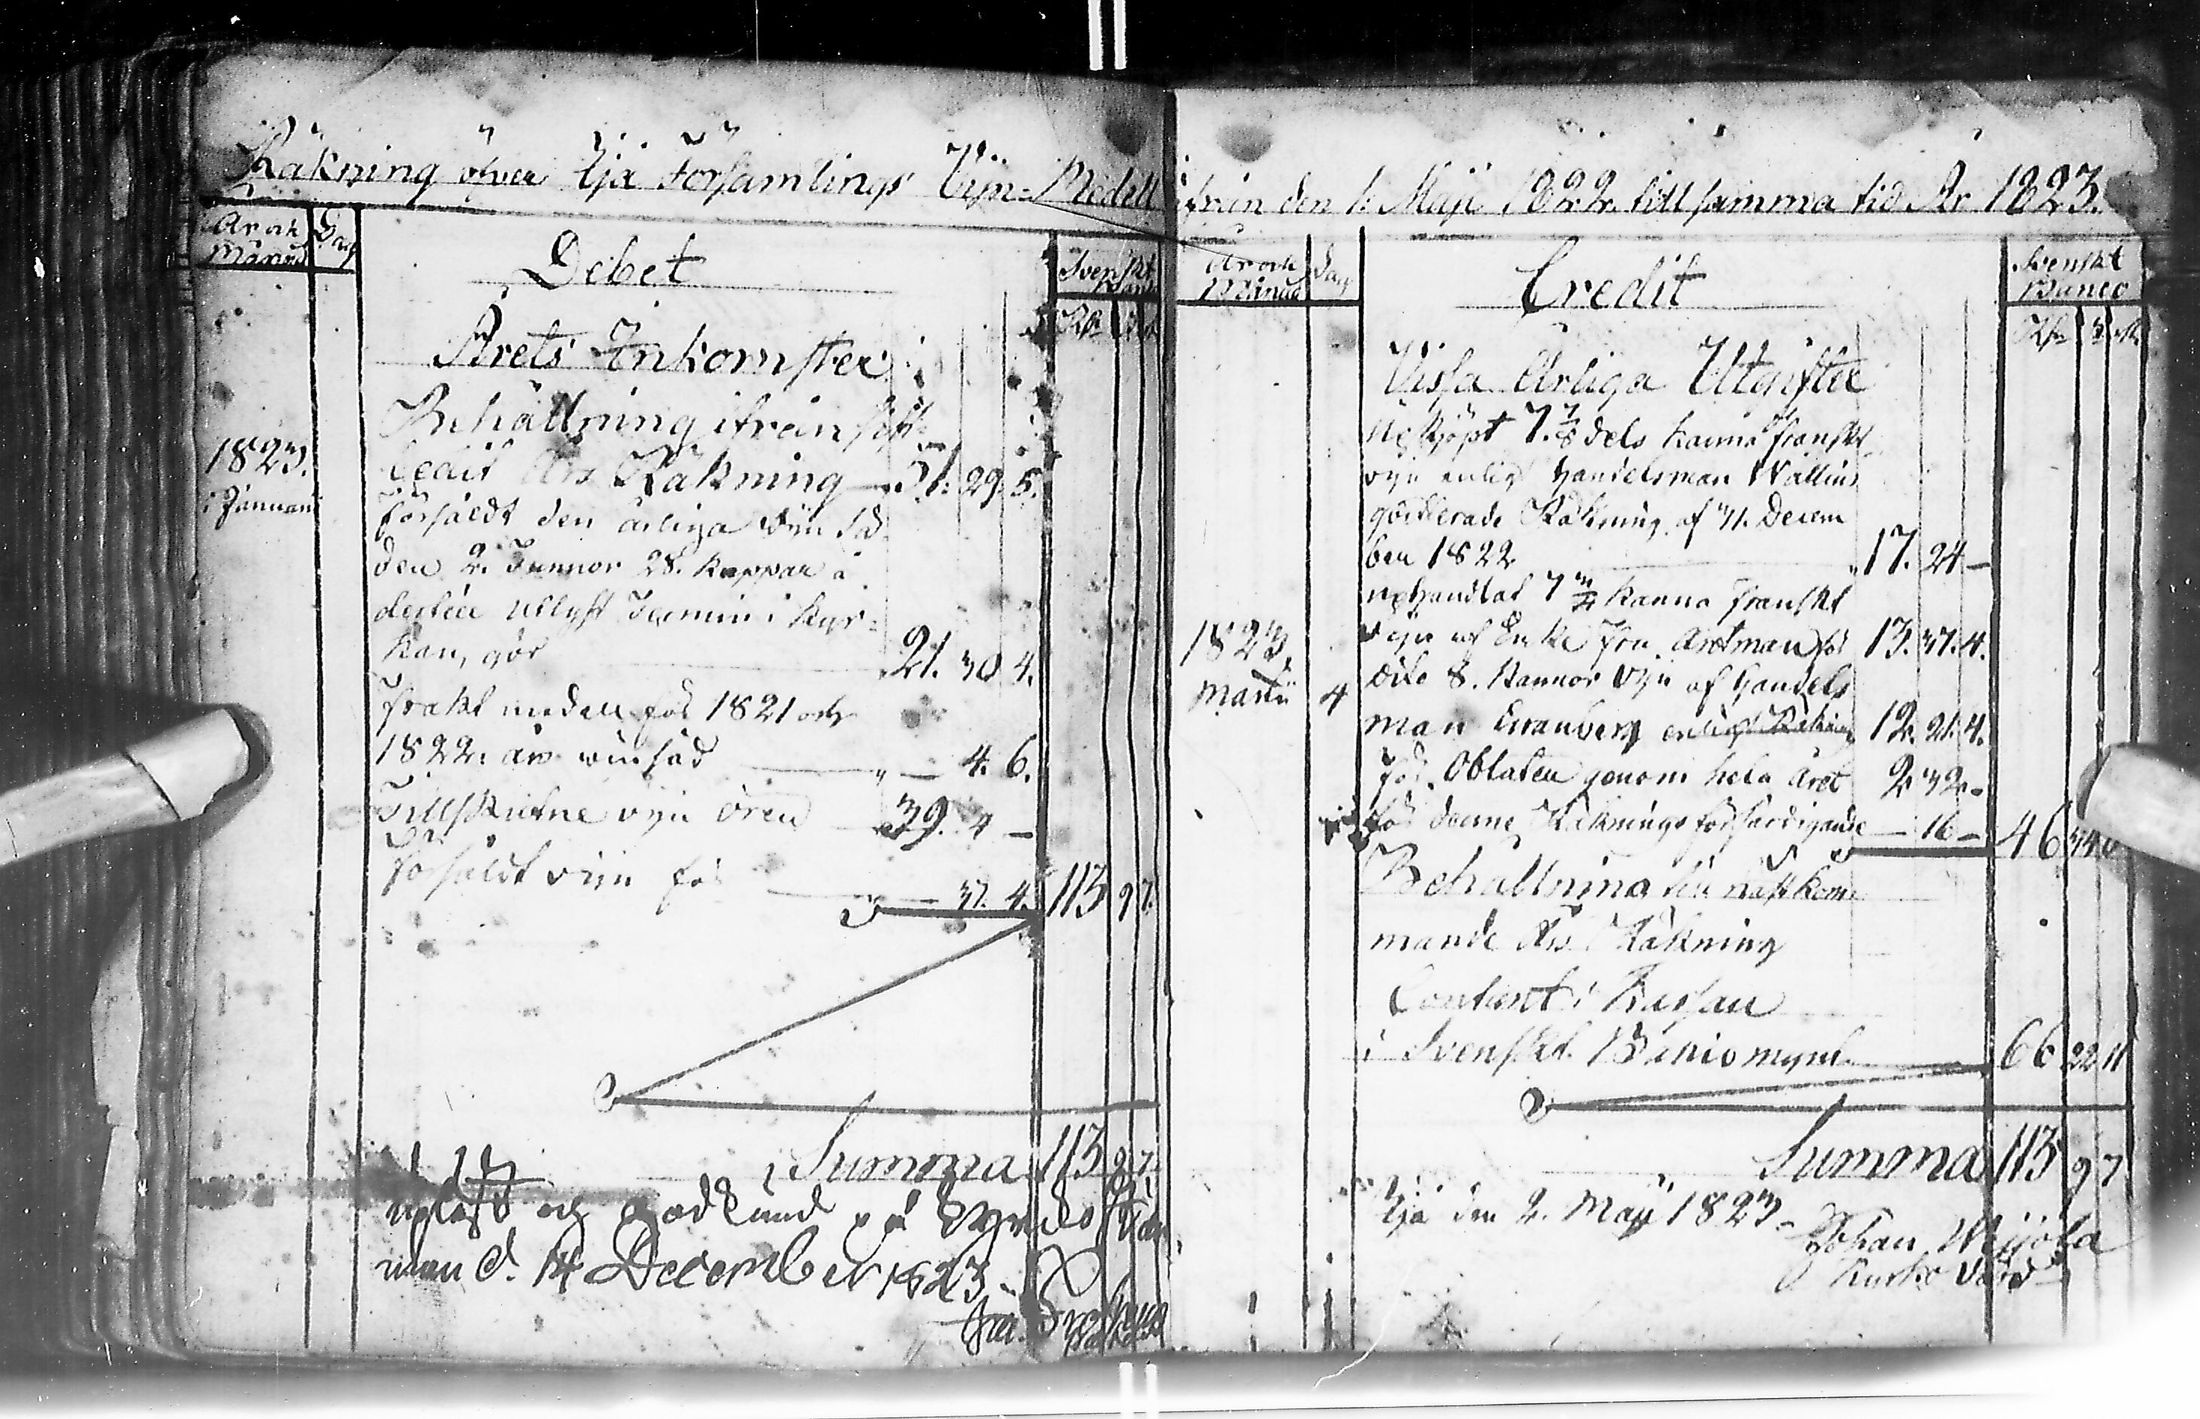 Räkning öfver Ijä Församlings Vijn-Medell ifrån den 1. Maji 1822 till samma tid År 1823.
År och Månad
Dag
Debet
Svenskt Banco
Rdr
Årets Inkomster
Behållning ifrån sist
1823.
ledit års Räkning 51. 29. 5.
Januari
Försåldt den årliga Vijn Sä
den 2. Tunnor 28. kappar á
derföre utlyst Termin i Kyr-
kan, gör 21. 30 4.
Frakt medell för 1821 och
1822 års vin säd — 4. 6.
Tillskutne vijn ören 39. 4 —
Försåldt vijn för — 37. 4. 113 9 7.
Summa 113 9 7.
upläst och godkiänd på Kyrko Stäm
man d. 14 December 1823.
År och Månad
Dag
Credit
Svenskt Banco
Rdr s. rst.
Vissa Årliga Utgifter
Upköpt 7. 7/8 dels kanna franskt
vijn enligt Handelsman Wallins
qvitterade Räkning af 31. Decem
ber 1822 17. 24 —
uphandlat 7 3/4 kanna franskt
1823
vijn af Enke fru Antman för 13. 37. 4.
Martii 4
dito 8. kannor Vijn af Handels
man enligt Räkning 12. 21. 4.
för Oblater genom hela året 2 32 -
för denne Räknings förfärdigande — 16 — 46 34 8
Behållning till nästkom
mande Års Räkning
Contant i Kassan
i Svenskt Banco mynt 66 22 11
Summa 113 9 7
Ijä den 2. Maji 1823.
Johan
Kyrko Värd